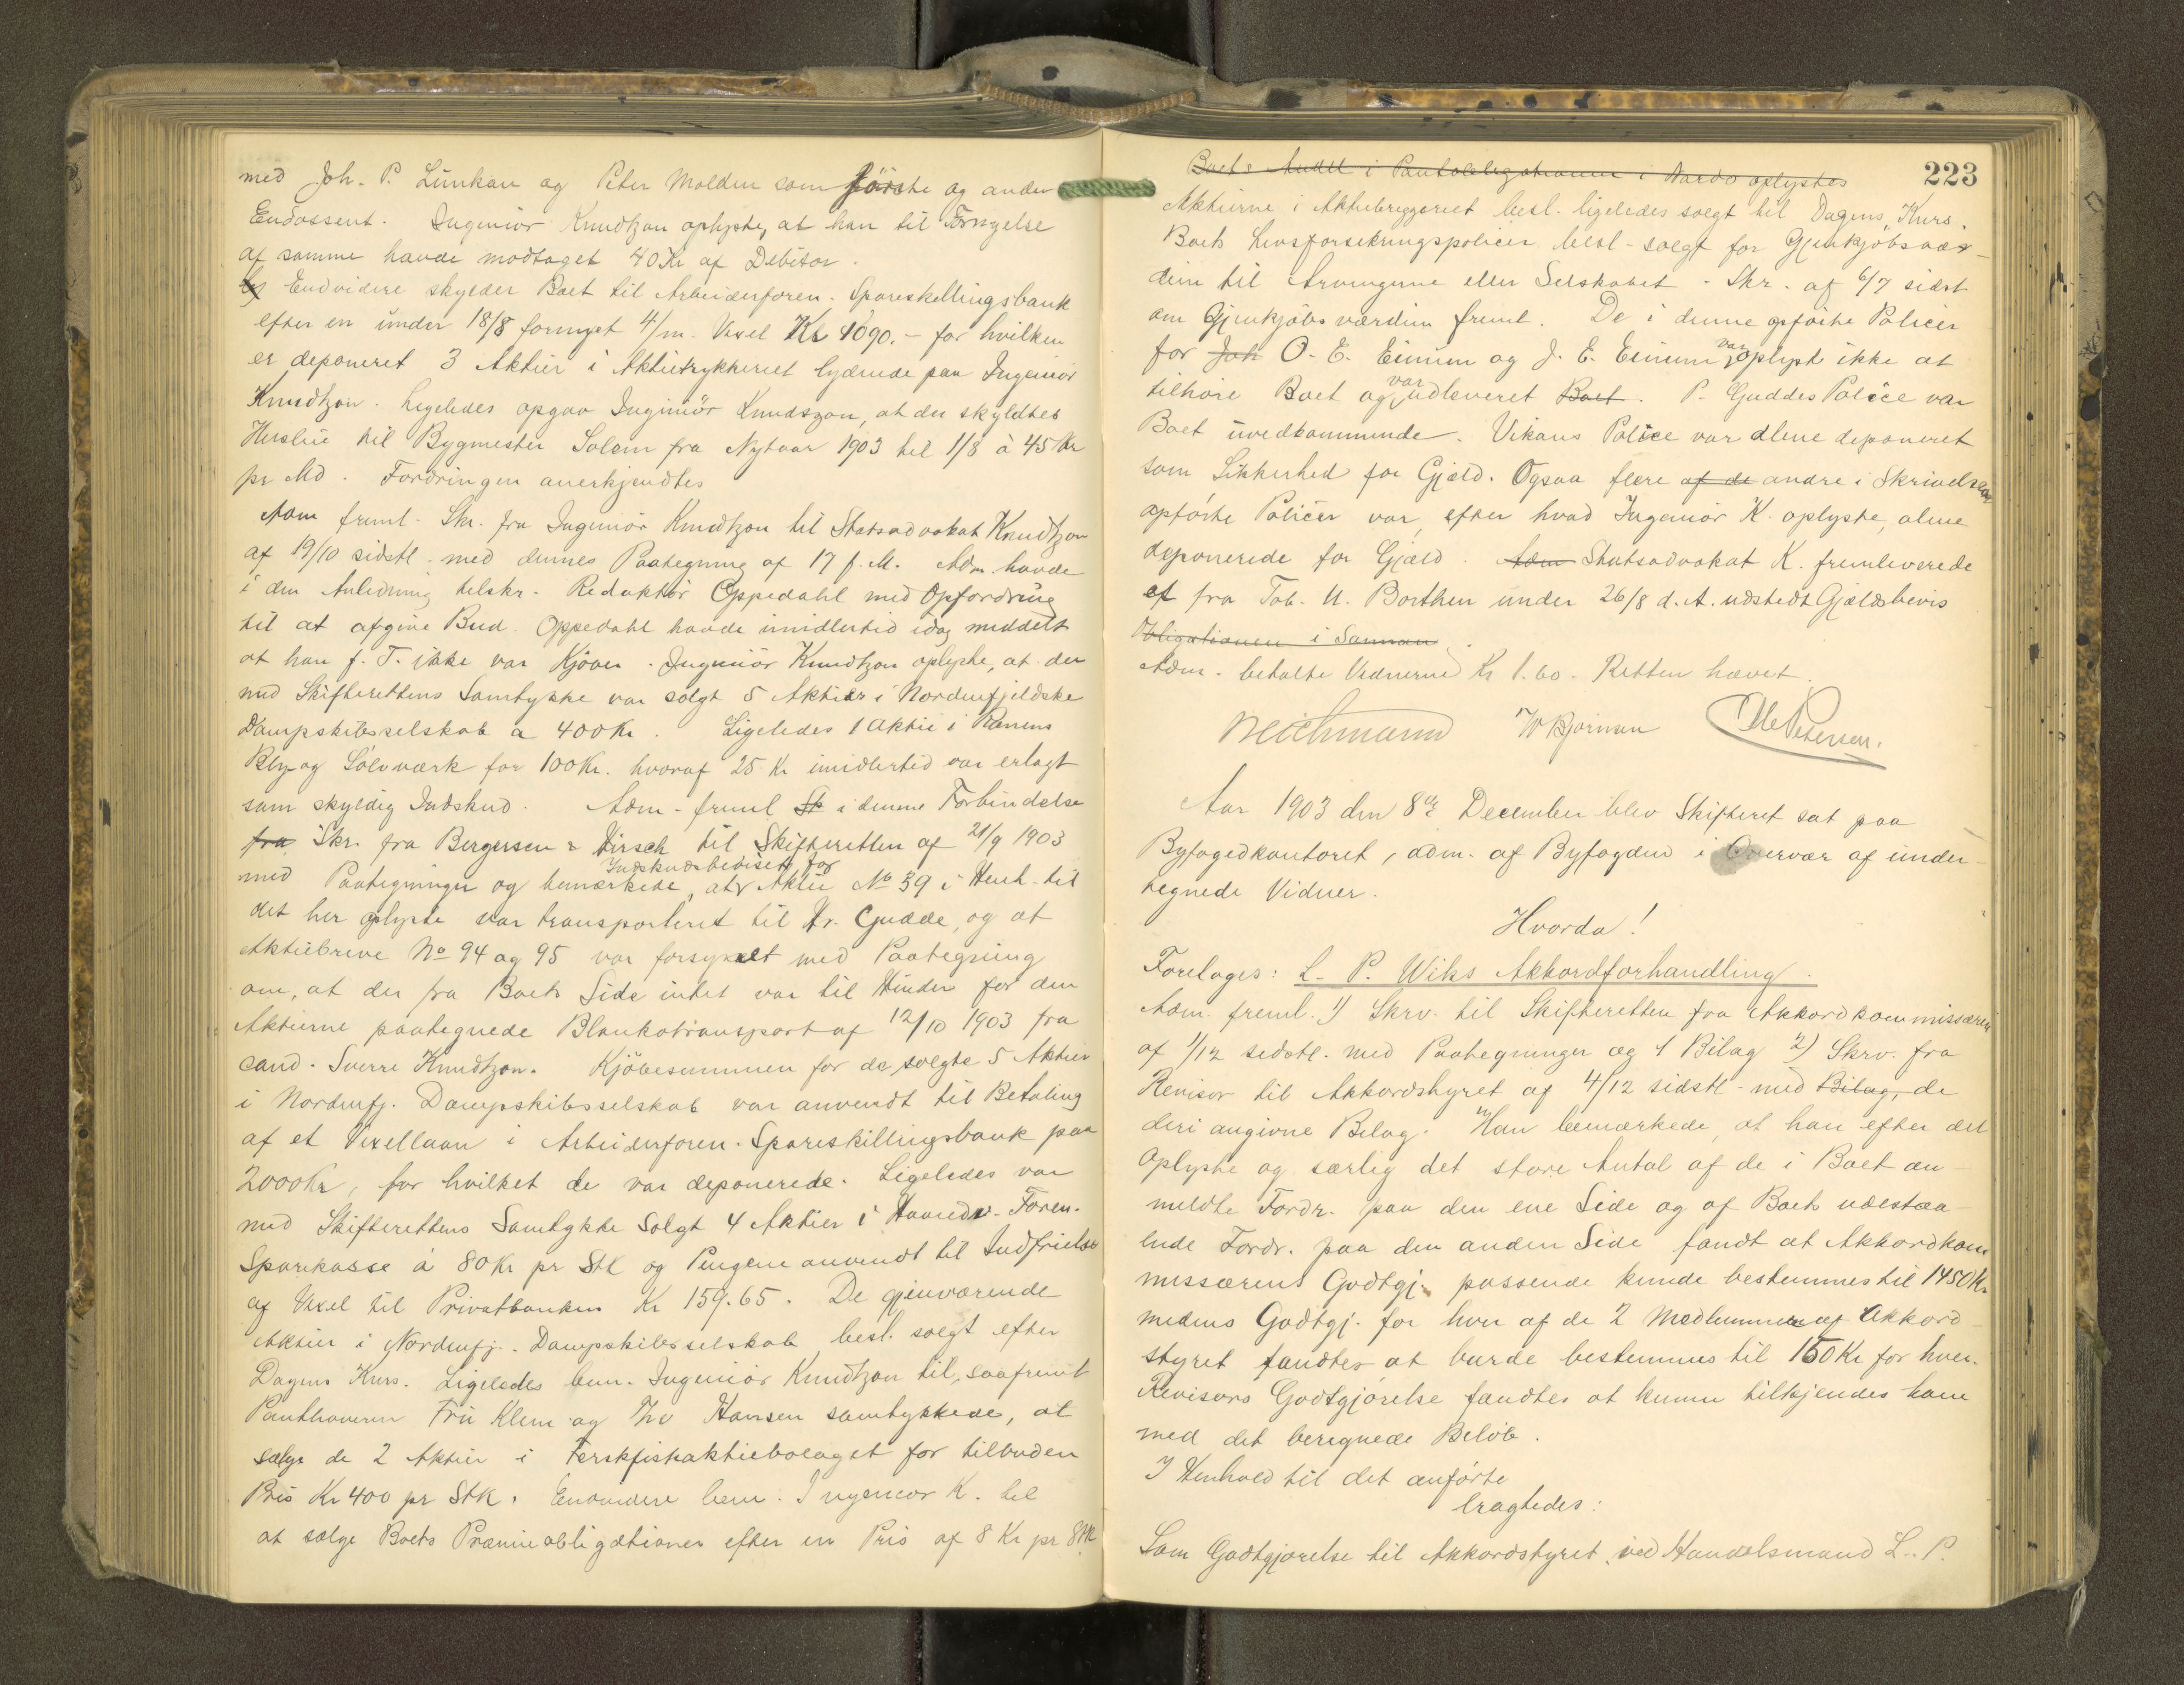 med Joh. P. Lunkan og Peter Molden som første og anden
Endossent. Ingeniør Knudtzon oplyste, at han til Fornyelse
af samme havde modtaget 40 Kr af Debitor.
Endvidere skylder Boet til Arbeiderforen. Spareskillingsbank
efter en under 18/8 fornyet 4/m. Vexel Kr 1090.- for hvilken
er deponeret 3 Aktier i Aktietrykkeriet lydende paa Ingeniør
Knudtzon. Ligeledes opgav Ingeniør Knudszon, at der skyldtes
Husleie til Bygmester Solem fra Nytaar 1903 til 1/8 à 45 Kr
pr Md. Fordringen anerkjendtes
Adm freml. Skr. fra Ingeniør Knudtzon til Statsadvokat Knudtzon
af 19/10 sidstl. med dennes Paategning af 17 f. M. Adm. havde
i den Anledning tilskr. Redaktør Oppedahl med Opfordring
til at afgive Bud. Oppedahl havde imidlertid idag meddelt
at han f. T. ikke var Kjøber. Ingeniør Knudtzon oplyste, at der
med Skifterettens Samtykke var solgt 5 Aktier i Nordenfjeldske
Dampskibsselskab a 400 Kr. Ligeledes 1 Aktie i Ranens
Bly og Sølvværk for 100 Kr. hvoraf 25 Kr imidlertid var erlagt
som skyldig Indskud. Adm. freml Sk i denne Forbindelse
fra Skr. fra Bergersen & Hirsch til Skifteretten af 21/9 1903
Indskudsbeviset for
med Paategninger og bemærkede, at Aktie No 39 i Henh. til
det her oplyste var transporteret til Hr. Gudde, og at
Aktiebreve No 94 og 95 var forsynet med Paategning
om, at der fra Boets Side intet var til Hinder for den
Aktierne paategnede Blankotransport af 12/10 1903 fra
cand. Sverre Knudtzon. Kjøbesummen for de solgte 5 Aktier
i Nordenfj. Dampskibsselskab var anvendt til Betaling
af et Vexellaan i Arbeiderforen. Spareskillingsbank paa
2000 Kr, for hvilket de var deponerede. Ligeledes var
med Skifterettens Samtykke Solgt 4 Aktier i Haandv. Foren.
Sparekasse á 80 Kr pr Stk og Pengene anvendt til Indfrielse
af Vexel til Privatbanken Kr 159.65. De gjenværende
Aktier i Nordenfj. Dampskibsselskab besl. solgt efter
Dagens Kurs. Ligeledes bem. Ingeniør Knudtzon til, saafremt
Panthaveren Fru Klem og Hansen samtykkede, at
sælge de 2 Aktier i Ferskfiskaktiebolaget for tilbuden
Pris Kr 400 pr Stk. Endvidere bem. Ingeniør K. til
at sælge Boets Præmieobligationer efter en Pris af 8 Kr pr Stk
223
Boets Andel i Pantobligationen i Nardo oplystes
Aktierne i Aktiebryggeriet besl. ligeledes solgt til Dagens Kurs.
Boets Livsforsikringspolicer besl. solgt for Gjenkjøbsvær-
dien til Arvingerne eller Selskabet. Skr. af 6/7 sidst
om Gjenkjøbsværdien freml. De i denne opførte Policer
for Joh O. E. Einum og J. E. Einum var oplyst ikke at
tilhøre Boet og var udleveret Boet. P. Guddes Police var
Boet uvedkommende. Vikans Police var alene deponeret
som Sikkerhed for Gjæld. Ogsaa flere af de andre i Skrivelsen
opførte Policer var, efter hvad Ingeniør K. oplyste, alene
deponerede for Gjæld. Adm Statsadvokat K. fremleverede
et fra Tob. U. Borthen under 26/8 d. A. udstedt Gjældsbevis
Obligationen i
Adm. betalte Vidnerne Kr 1.60. Retten hævet.
Bjørnsen Ole Petersen.
Aar 1903 den 8de December blev Skifteret sat paa
Byfogedkontoret, adm. af Byfogden i Overvær af under-
tegnede Vidner.
Hvorda!
Foretoges: L. P. Wiks Akkordforhandling.
Adm. freml. 1) Skrv. til Skifteretten fra Akkordkommissæren
af 1/12 sidstl. med Paategninger og 1 Bilag 2) Skrv. fra
Revisor til Akkordstyret af 4/12 sidstl. med Bilag, de
deri angivne Bilag. Han bemærkede, at han efter det
Oplyste og særlig det store Antal af de i Boet an-
meldte Fordr. paa den ene Side og af Boets udestaa-
ende Fordr. paa den anden Side fandt at Akkordkom
missærens Godtgj. passende kunde bestemmes til 1450 Kr
medens Godtgj. for hver af de 2 Medlemmer af Akkord-
styret fandtes at burde bestemmes til 150 Kr for hver.
Revisors Godtgjørelse fandtes at kunne tilkjendes ham
med det beregnede Beløb.
I Henhold til det anførte
bragtedes:
Som Godtgjørelse til Akkordstyret ved Handelsmand L. P.